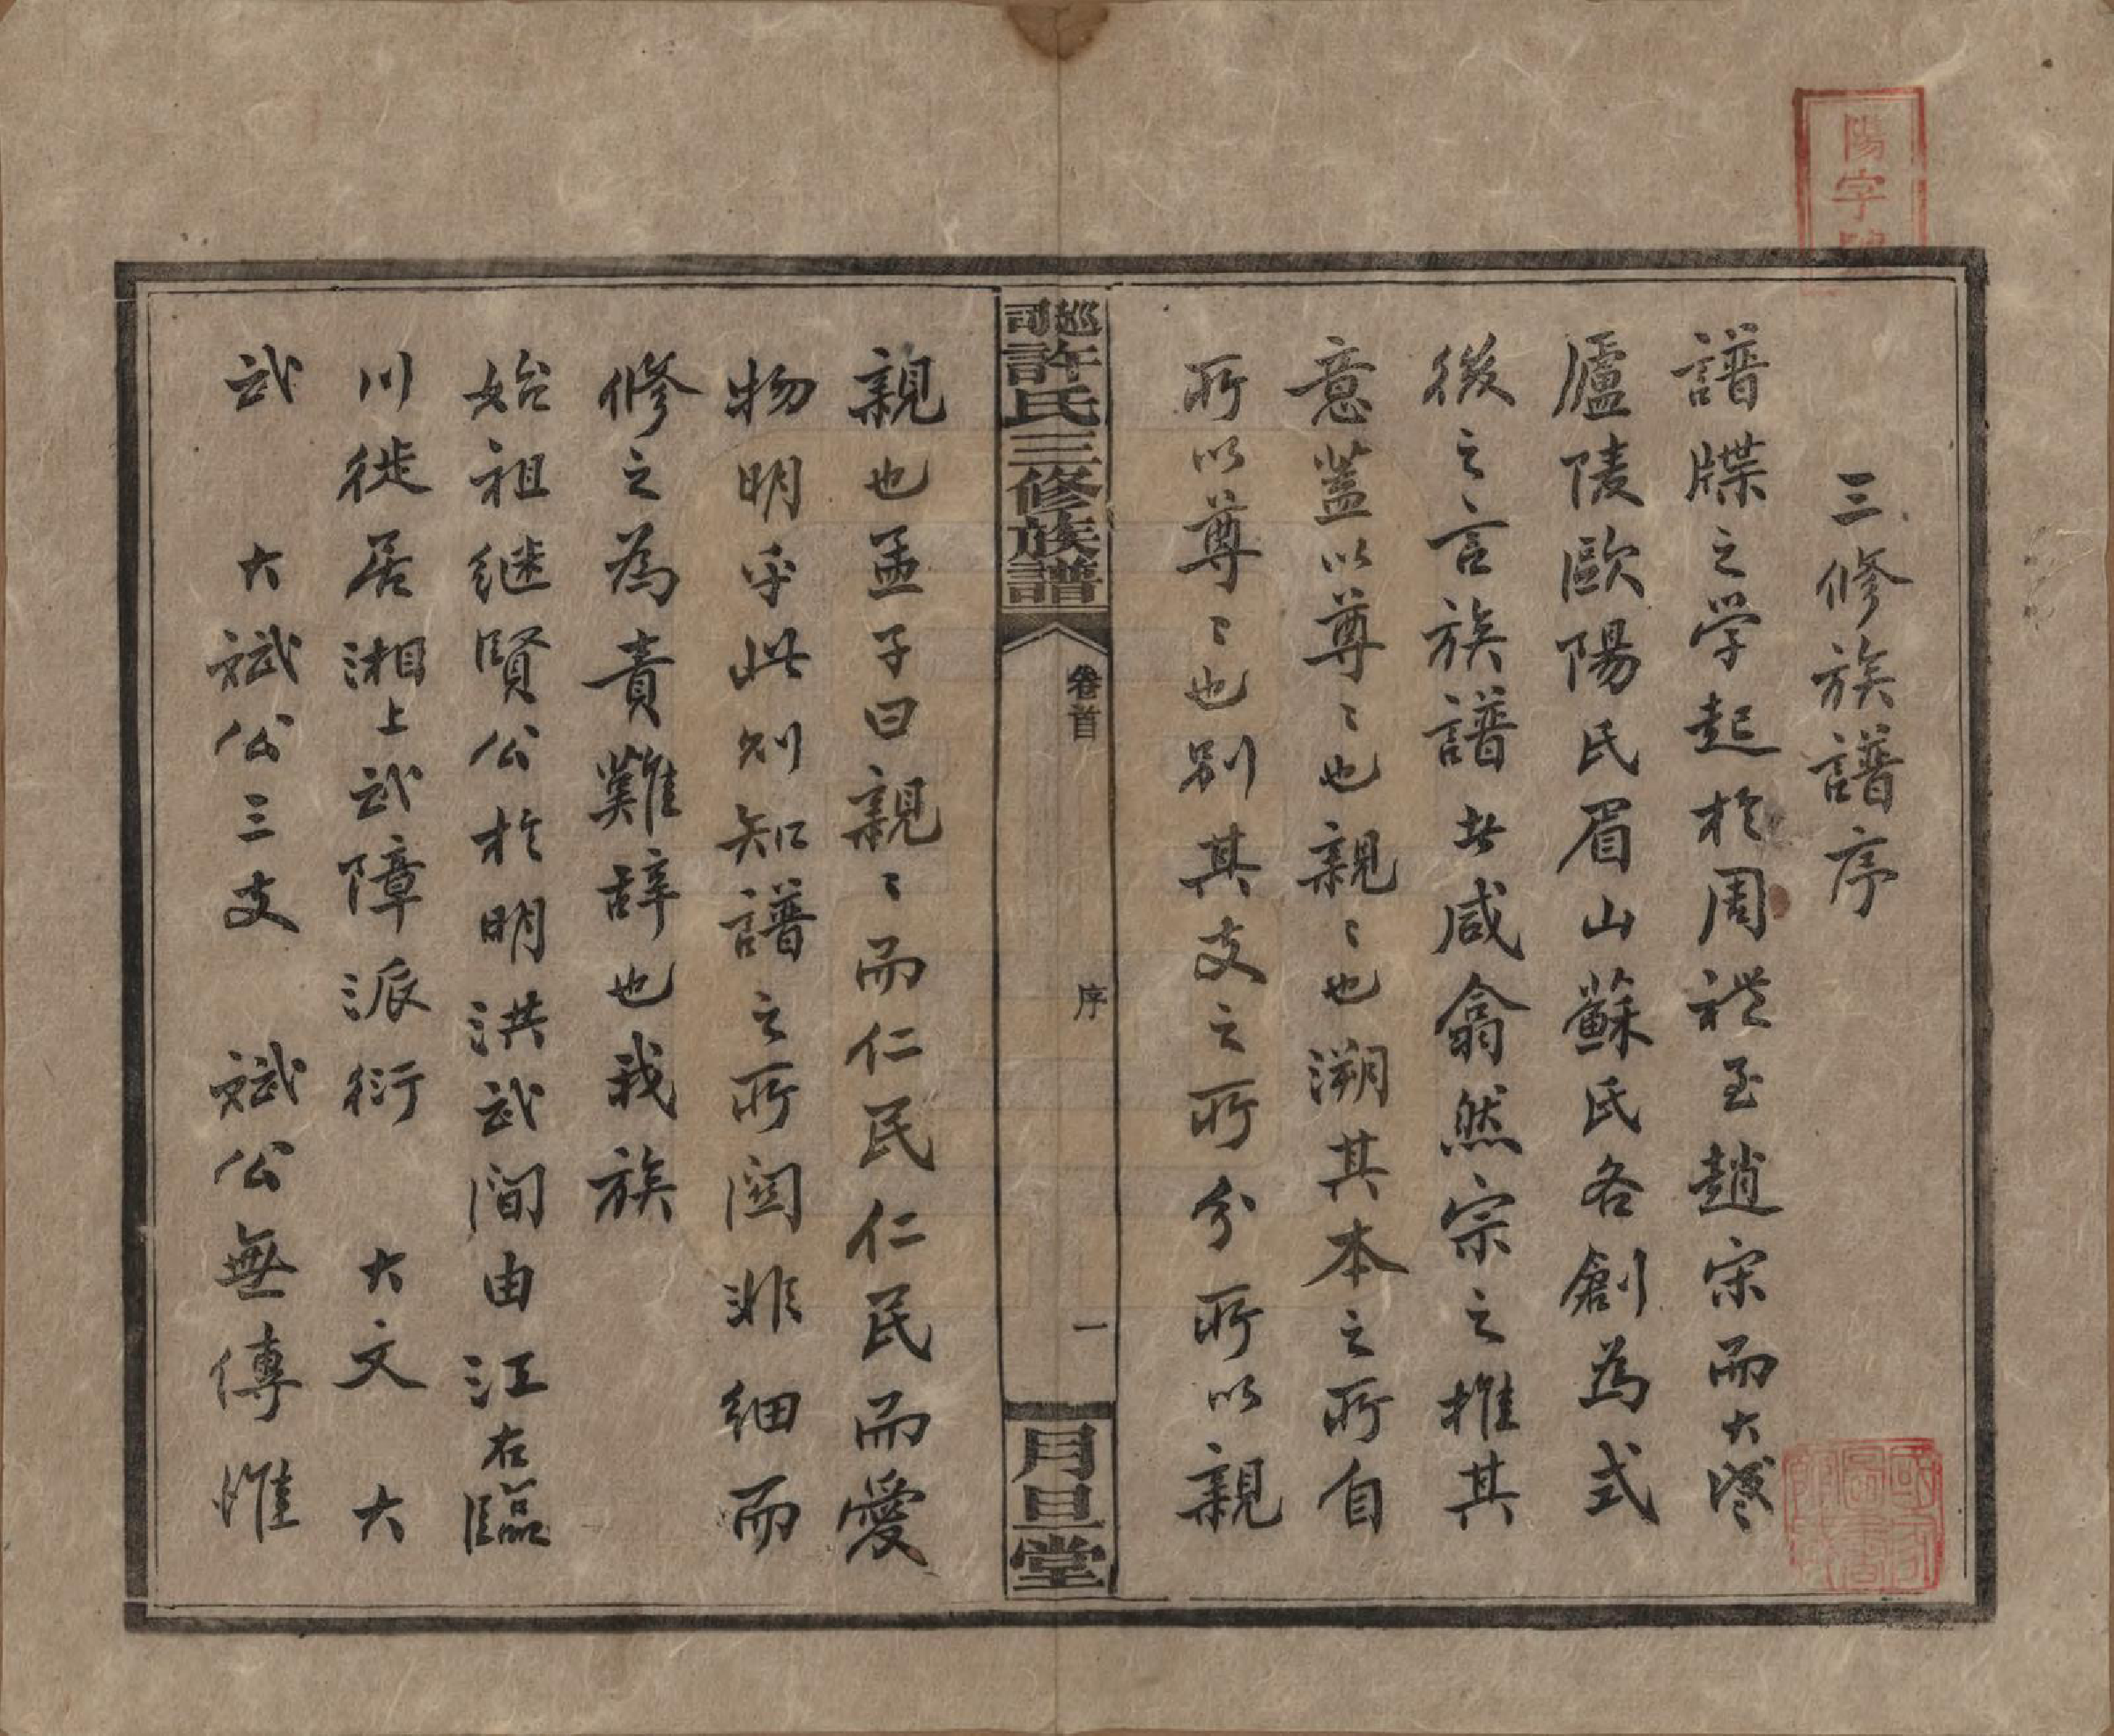 三修族譜序
譜牒之学起於周禮至趙宋而大盛
廬陵歐陽氏眉山蘇氏各創為式
後之言族譜者咸翕然宗之推其
意蓋以尊〻也親〻也溯其本之所自
所以尊〻也別其支之所分所以親
巡司許氏三修族譜
卷首
序
一
月旦堂
親也孟子曰親〻而仁民仁民而愛
物明乎此則知譜之所関非細而
修之為責難辞也我族
始祖继賢公於明洪武间由江右臨
川徙居湘上武障派衍 大文 大
武 大斌公三支 斌公無傳惟
陽字號